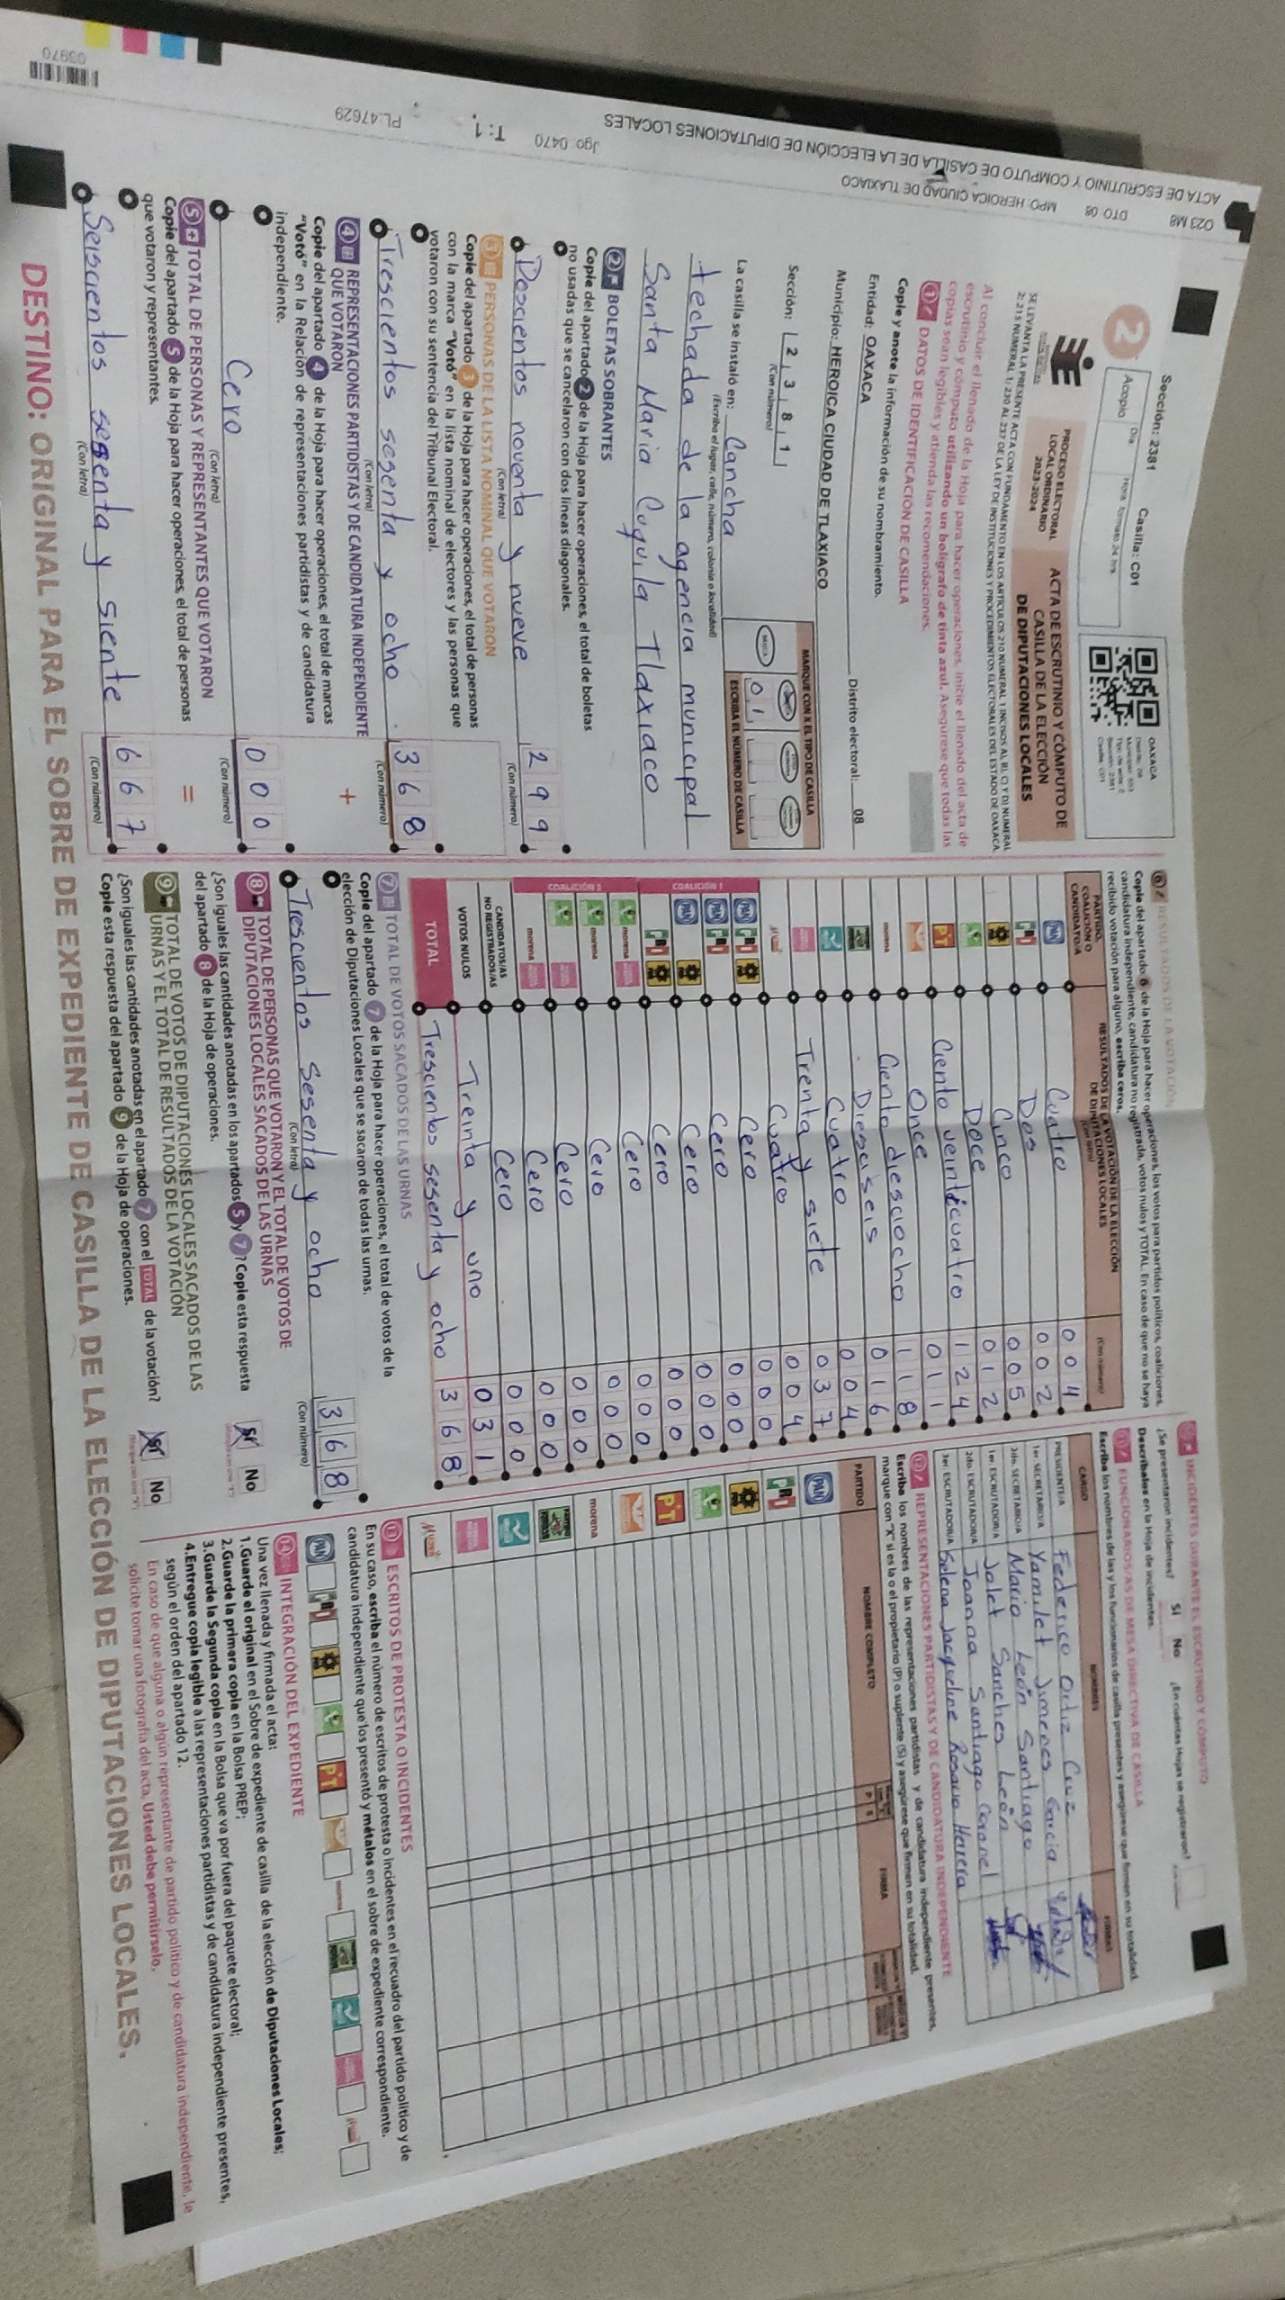 Sección: 2381 Casilla: C01
2
Acopio Día Hora formato 24 hrs.
OAXACA
PROCESO ELECTORAL
LOCAL ORDINARIO
2023-2024
ACTA DE ESCRUTINIO Y CÓMPUTO DE
CASILLA DE LA ELECCIÓN
DE DIPUTACIONES LOCALES
Al concluir el llenado de la Hoja para hacer operaciones, inicie el llenado del acta de
escrutinio y cómputo utilizando un bolígrafo de tinta azul. Asegúrese que todas las
copias sean legibles y atienda las recomendaciones.
1 DATOS DE IDENTIFICACIÓN DE CASILLA
Copie y anote la información de su nombramiento.
Entidad: OAXACA Distrito electoral: 08
Municipio: HEROICA CIUDAD DE TLAXIACO
Sección: 2 3 8 1
(Con número)
MARQUE CON X EL TIPO DE CASILLA
0 1
ESCRIBA EL NÚMERO DE CASILLA
La casilla se instaló en: Cancha
(Escriba el lugar, calle, número, colonia o localidad)
techada de la agencia municipal
Santa Maria Cuquila Tlaxiaco
2 BOLETAS SOBRANTES
Copie del apartado 2 de la Hoja para hacer operaciones, el total de boletas
no usadas que se cancelaron con dos líneas diagonales.
Doscientos noventa y nueve 2 9 9
(Con letra) (Con número)
3 PERSONAS DE LA LISTA NOMINAL QUE VOTARON
Copie del apartado 3 de la Hoja para hacer operaciones, el total de personas
con la marca "Votó" en la lista nominal de electores y las personas que
votaron con su sentencia del Tribunal Electoral.
Trescientos sesenta y ocho 3 6 8
(Con letra) (Con número)
4 REPRESENTACIONES PARTIDISTAS Y DE CANDIDATURA INDEPENDIENTE
QUE VOTARON
+
Copie del apartado 4 de la Hoja para hacer operaciones, el total de marcas
"Votó" en la Relación de representaciones partidistas y de candidatura
independiente.
Cero 0 0 0
(Con letra) (Con número)
5 TOTAL DE PERSONAS Y REPRESENTANTES QUE VOTARON
=
Copie del apartado 5 de la Hoja para hacer operaciones, el total de personas
que votaron y representantes.
Seiscientos sesenta y siente 6 6 7
(Con letra) (Con número)
6 RESULTADOS DE LA VOTACIÓN
Copie del apartado 6 de la Hoja para hacer operaciones, los votos para partidos políticos, coaliciones,
candidatura independiente, candidatura no registrada, votos nulos y TOTAL. En caso de que no se haya
recibido votación para alguno, escriba ceros.
PARTIDO,
COALICIÓN O
CANDIDATO/A
RESULTADOS DE LA VOTACIÓN DE LA ELECCIÓN
DE DIPUTACIONES LOCALES
(Con letra) (Con número)
PAN Cuatro 0 0 4
PRI Dos 0 0 2
PRD Cinco 0 0 5
Doce 0 1 2
PT Ciento veinticuatro 1 2 4
Once 0 1 1
morena Ciento diesciocho 1 1 8
Diesciseis 0 1 6
Cuatro 0 0 4
Trenta y siete 0 3 7
Cuatro 0 0 4
COALICIÓN 1
PAN PRI PRD Cero 0 0 0
PAN PRI Cero 0 0 0
PAN PRD Cero 0 0 0
PRI PRD Cero 0 0 0
COALICIÓN 2
morena Cero 0 0 0
morena Cero 0 0 0
Cero 0 0 0
morena Cero 0 0 0
CANDIDATOS/AS
NO REGISTRADOS/AS Cero 0 0 0
VOTOS NULOS Treinta y uno 0 3 1
TOTAL Trescientos sesenta y ocho 3 6 8
7 TOTAL DE VOTOS SACADOS DE LAS URNAS
Copie del apartado 7 de la Hoja para hacer operaciones, el total de votos de la
elección de Diputaciones Locales que se sacaron de todas las urnas.
Trescientos sesenta y ocho 3 6 8
(Con letra) (Con número)
8 TOTAL DE PERSONAS QUE VOTARON Y EL TOTAL DE VOTOS DE
DIPUTACIONES LOCALES SACADOS DE LAS URNAS
¿Son iguales las cantidades anotadas en los apartados 5 y 7? Copie esta respuesta
del apartado 8 de la Hoja de operaciones.
Sí No
9 TOTAL DE VOTOS DE DIPUTACIONES LOCALES SACADOS DE LAS
URNAS Y EL TOTAL DE RESULTADOS DE LA VOTACIÓN
¿Son iguales las cantidades anotadas en el apartado 7 con el TOTAL de la votación?
Copie esta respuesta del apartado 9 de la Hoja de operaciones.
Sí No
INCIDENTES DURANTE EL ESCRUTINIO Y CÓMPUTO
¿Se presentaron incidentes? Sí No ¿En cuántas Hojas se registraron?
Descríbalos en la Hoja de incidentes.
FUNCIONARIOS/AS DE MESA DIRECTIVA DE CASILLA
Escriba los nombres de las y los funcionarios de casilla presentes y asegúrese que firmen en su totalidad.
CARGO NOMBRES FIRMAS
PRESIDENTE/A Federico Ortiz Cruz
1er. SECRETARIO/A Yamilet Jimenes Garcia
2do. SECRETARIO/A Mario León Santiago
1er. ESCRUTADOR/A Jalet Sanches León
2do. ESCRUTADOR/A Joanna Santiago Coronel
3er. ESCRUTADOR/A Selena Jacqueline Rosario Herrera
12 REPRESENTACIONES PARTIDISTAS Y DE CANDIDATURA INDEPENDIENTE
Escriba los nombres de las representaciones partidistas y de candidatura independiente presentes,
marque con "X" si es la o el propietario (P) o suplente (S) y asegúrese que firmen en su totalidad.
PARTIDO NOMBRE COMPLETO P S FIRMA
PAN
PRI
PRD
PT
morena
13 ESCRITOS DE PROTESTA O INCIDENTES
En su caso, escriba el número de escritos de protesta o incidentes en el recuadro del partido político y de
candidatura independiente que los presentó y métalos en el sobre de expediente correspondiente.
14 INTEGRACIÓN DEL EXPEDIENTE
Una vez llenada y firmada el acta:
1.Guarde el original en el Sobre de expediente de casilla de la elección de Diputaciones Locales;
2.Guarde la primera copia en la Bolsa PREP;
3.Guarde la Segunda copia en la Bolsa que va por fuera del paquete electoral;
4.Entregue copia legible a las representaciones partidistas y de candidatura independiente presentes,
según el orden del apartado 12.
En caso de que alguna o algún representante de partido político y de candidatura independiente, le
solicite tomar una fotografía del acta, Usted debe permitírselo.
DESTINO: ORIGINAL PARA EL SOBRE DE EXPEDIENTE DE CASILLA DE LA ELECCIÓN DE DIPUTACIONES LOCALES.
O23 M8 DTO: 08 MPO: HEROICA CIUDAD DE TLAXIACO
ACTA DE ESCRUTINIO Y COMPUTO DE CASILLA DE LA ELECCIÓN DE DIPUTACIONES LOCALES
Jgo: 0470 T: 1 PL:47629
03970